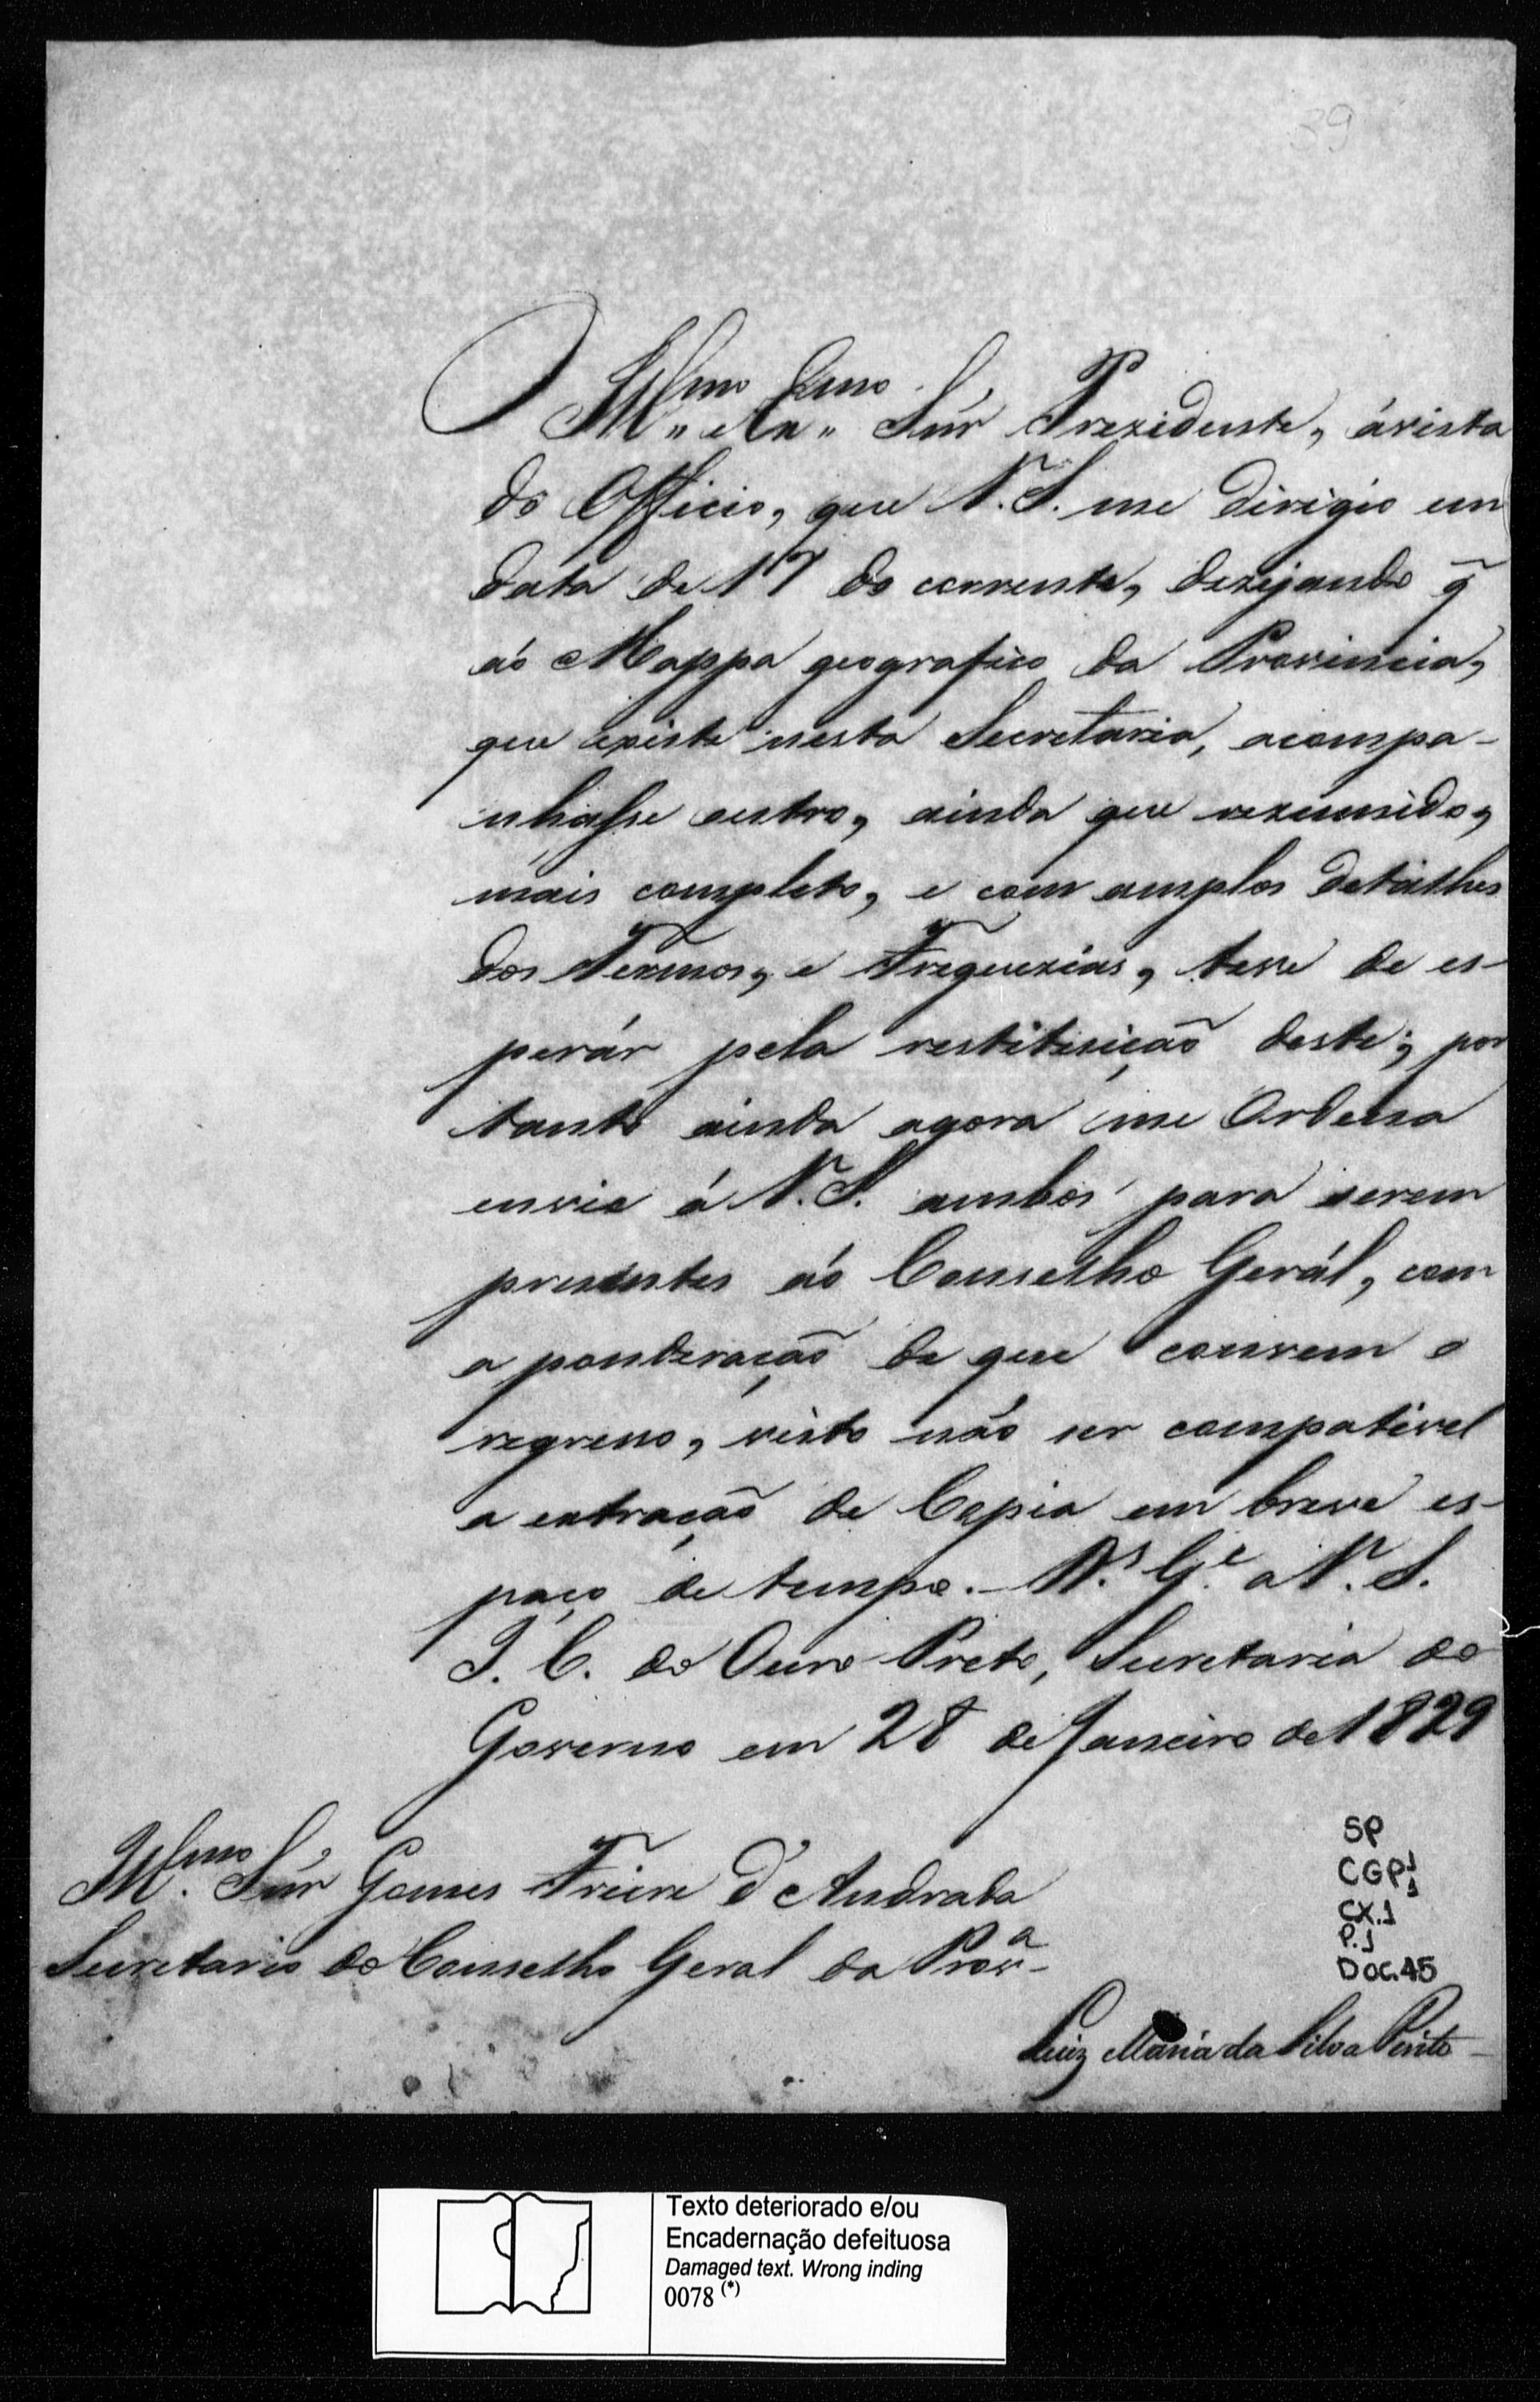 39
O Ill.mo Ex.mo Snr Prezidente, ávista
do Officio, que V.S. me dirigio em
data de 17 do corrente, dezejando q̃
áo Mappa geografico da Provincia,
que existe nesta Secretaria, acompa-
nhasse outro, ainda que rezumido,
mais completo, e com amplos detalhes
dos Termos, e Freguezias, teve de es-
perár pela restituição deste; por
tanto ainda agora me Ordena
envie á V.S. ambos para serem
presentes áo Conselho Gerál, com
a ponderação de que convem o
regresso, visto não ser compativel
a extração de Copia em breve es-
paço de tempo. D.s G.e a V.S.
I. C. do Ouro Preto, Secretaria do
Governo em 28 de Janeiro de 1829
Ill.mo Snr Gomes Freire d'Andrada
Secretario do Conselho Geral da Prov.a
SP
CGP1
CX.1
P.1
Doc.45
Luiz Maria da Silva Pinto
Texto deteriorado e/ou
Encadernação defeituosa
Damaged text. Wrong inding
0078 (*)